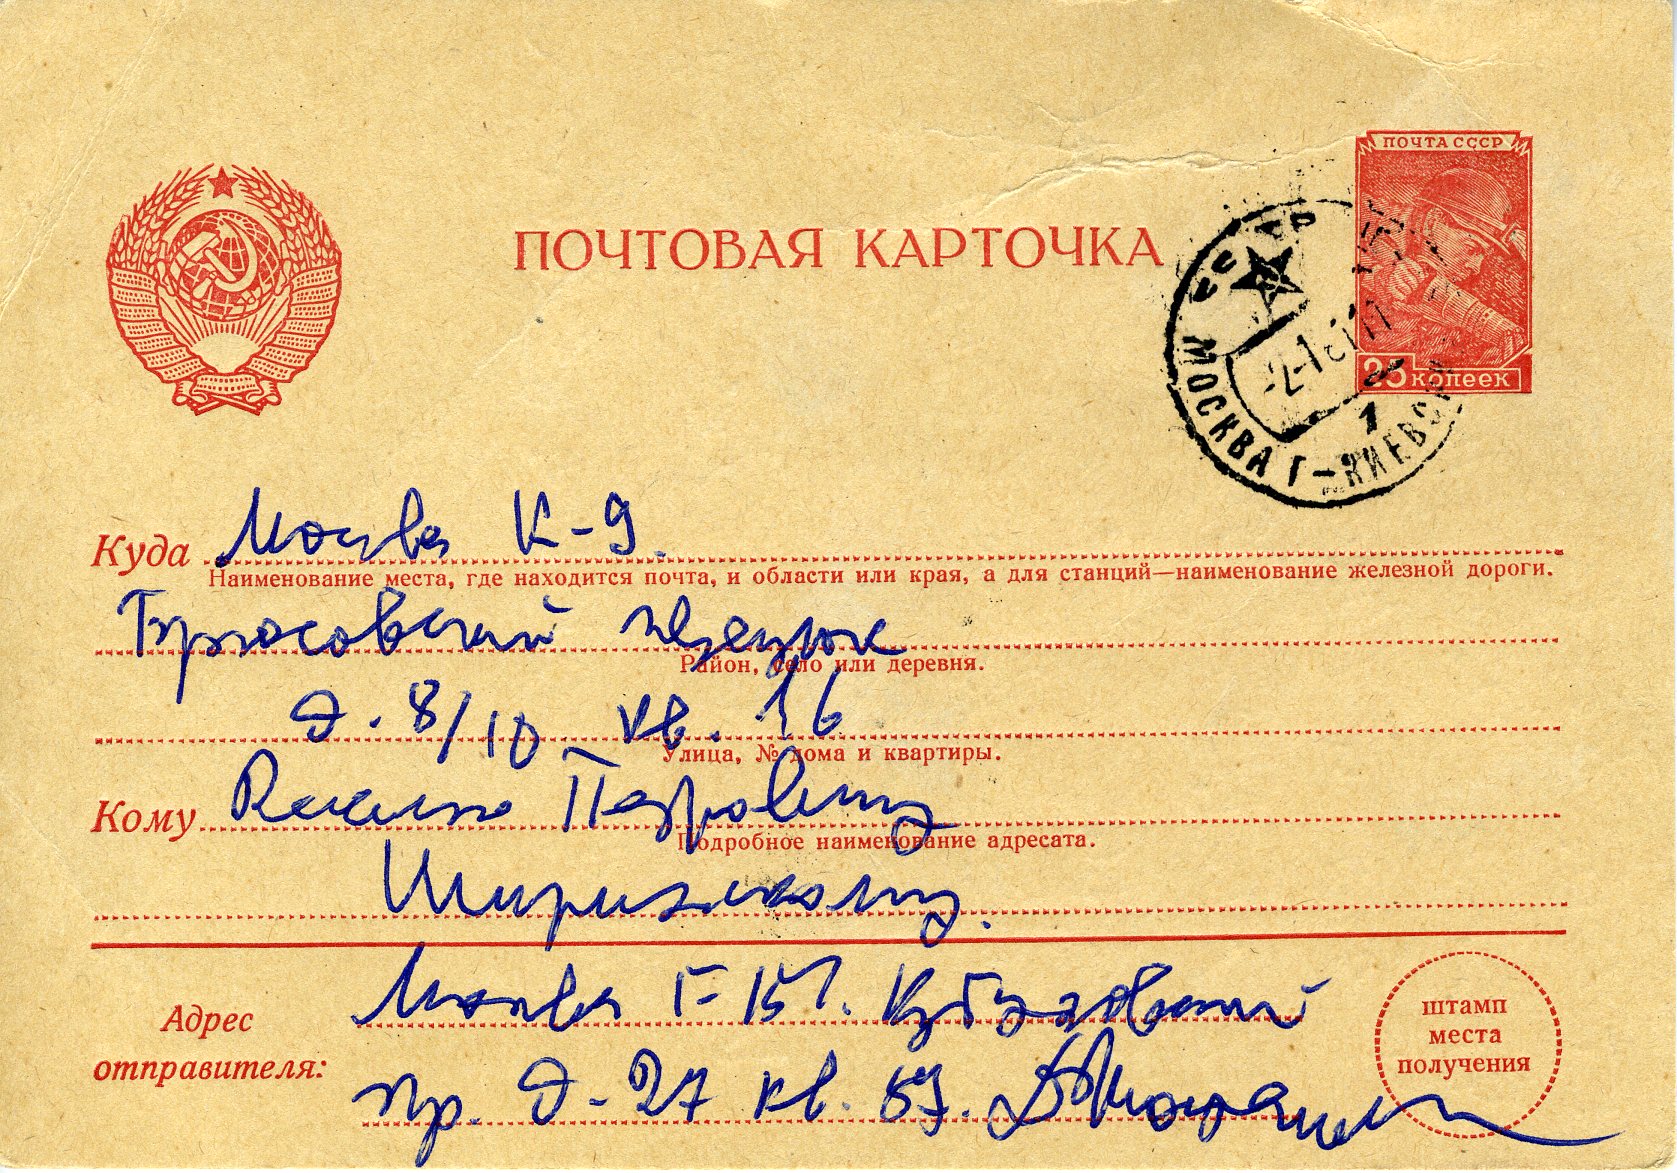 ПОЧТА СССР
ПОЧТОВАЯ КАРТОЧКА
СССР
МОСКВА Г-КИЕВСК
25 копеек
Куда Москва К-9.
Наименование места, где находится почта, и области или края, а для станций—наименование железной дороги.
Брюсовский переулок
Район, село или деревня.
д. 8/10 кв. 16
Улица, № дома и квартиры.
Кому Василию Петровичу
Подробное наименование адресата.
Ширинскому.
Адрес отправителя:
Москва Г-151. Кутузовский
пр. д-27 кв. 89.
штамп
места
получения